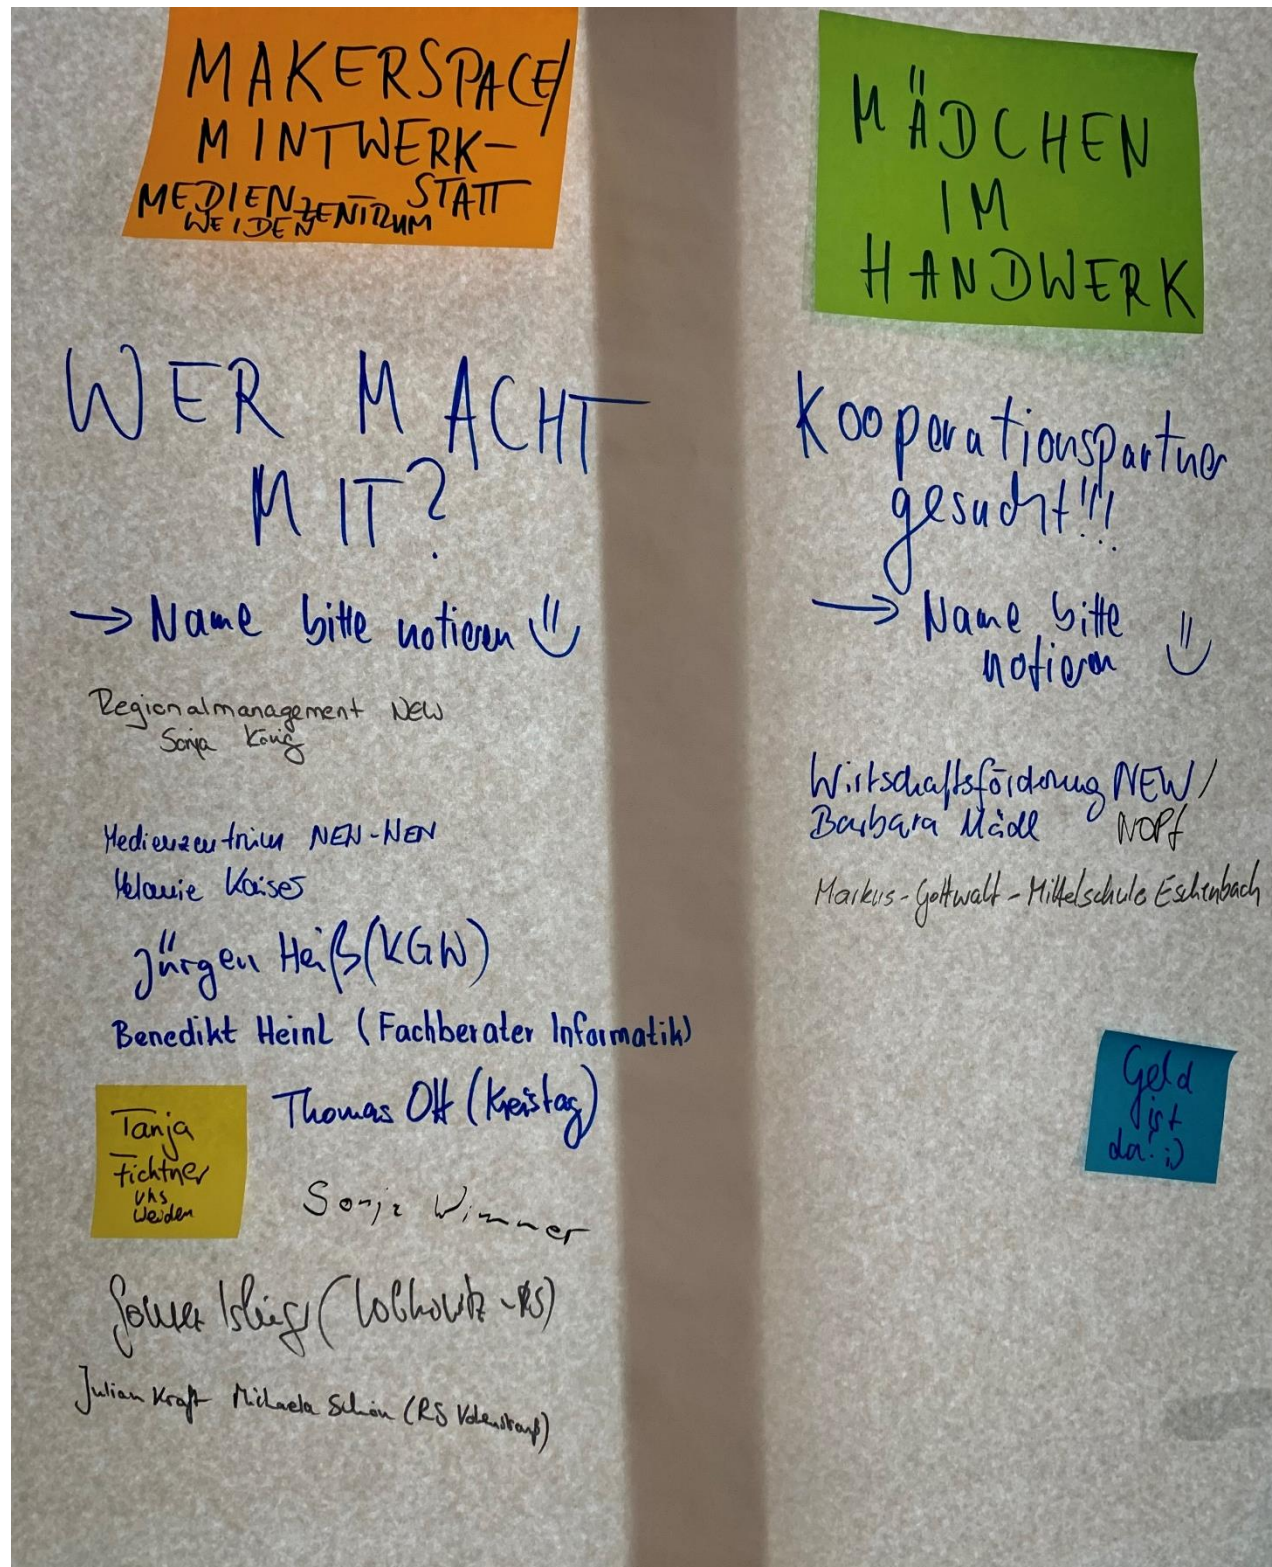 MAKERSPACE/
MINTWERK-
STATT
MEDIENZENTRUM
WEIDEN
WER MACHT
MIT?
→ Name bitte notieren
Regionalmanagement NEW
Sonja König
Medienzentrum NEW-WEN
Melanie Kaiser
Jürgen Heiß (KGW)
Benedikt Heinl (Fachberater Informatik)
Thomas Ott (Kreistag)
Tanja
Fichtner
vhs
Weiden
Sonja Wimmer
(Lobkowitz-RS)
Julian Kraft Michaela Schön (RS Vohenstrauß)
MÄDCHEN
IM
HANDWERK
Kooperationspartner
gesucht!!!
→ Name bitte
notieren
Wirtschaftsförderung NEW/
Barbara Mädl NOPf
Markus-Gottwalt-Mittelschule Eschenbach
Geld
ist
da! :)